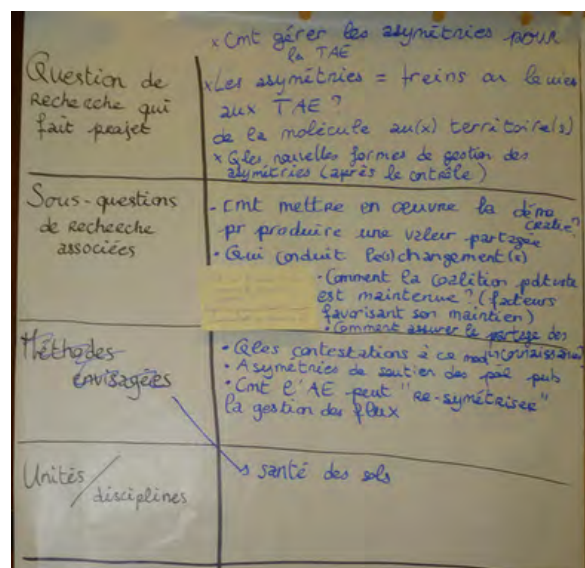 Question de
Recherche qui
fait projet
x Cmt gérer les asymétries pour
la TAE
x Les asymétries = freins ou leviers
aux TAE ?
de la molécule au(x) territoire(s)
x Qles nouvelles formes de gestion des
asymétries (après le contrôle)
Sous-questions
de Recherche
associées
- Cmt mettre en œuvre la démo
cratie?
pr produire une valeur partagée
- Qui conduit le(s) changement(s)
- Comment la coalition pdtiste
est maintenue ? (facteurs
favorisant son maintien)
• Comment assurer le partage des
Méthodes
envisagées
• Qles contestations à ce
• Asymétries de soutien des pol pub
• Cmt l'AE peut "re-symétriser"
la gestion des flux
Unités /
disciplines
santé des sols